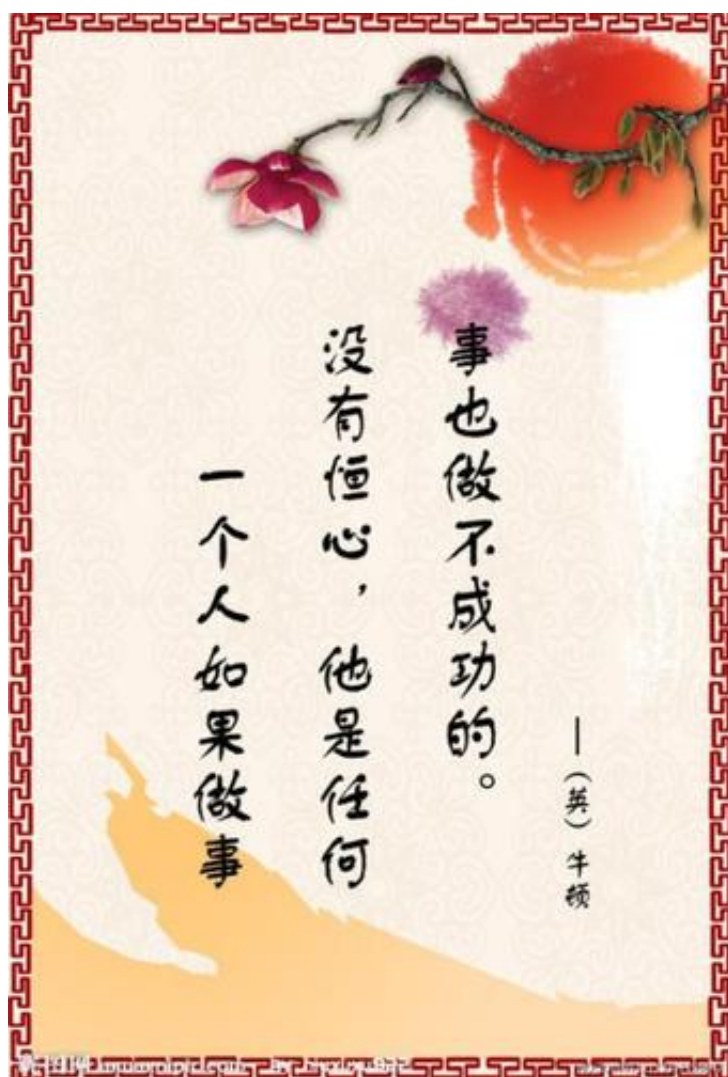 一个人如果做事
没有恒心，他是任何
事也做不成功的。
—（英）牛顿